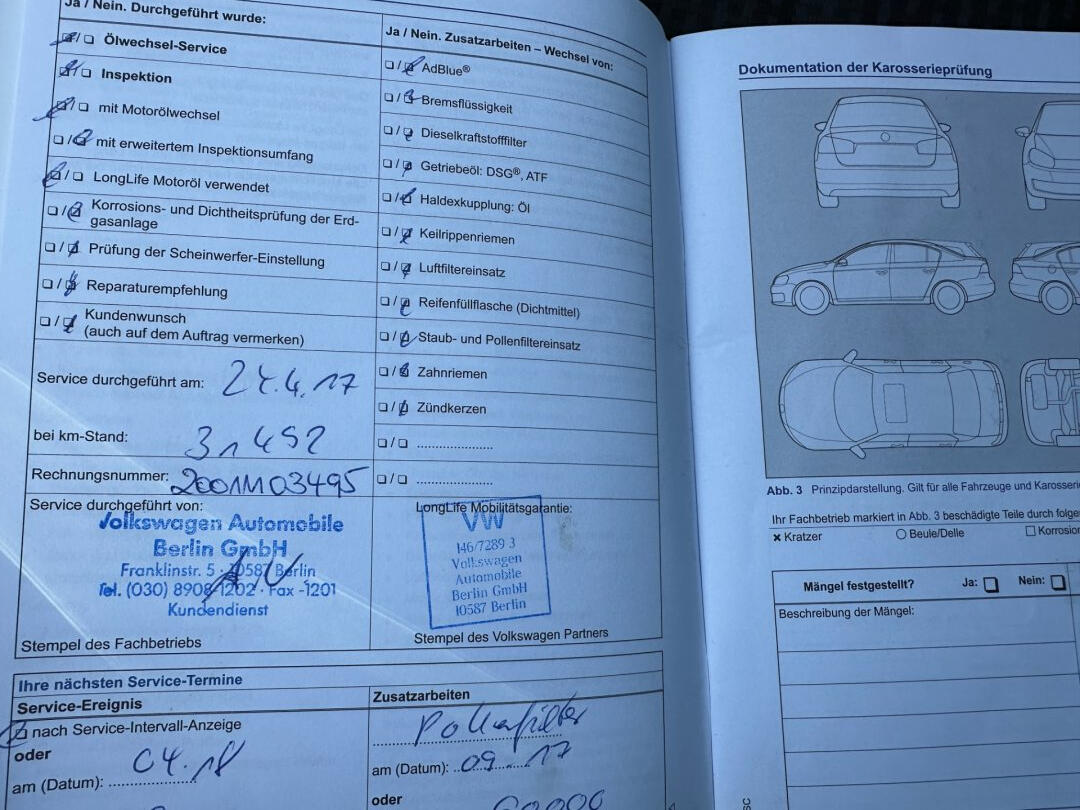 Ja / Nein. Durchgeführt wurde:
☑/☐ Ölwechsel-Service
☑/☐ Inspektion
☑/☐ mit Motorölwechsel
☐/☑ mit erweitertem Inspektionsumfang
☑/☐ LongLife Motoröl verwendet
☐/☑ Korrosions- und Dichtheitsprüfung der Erd-
gasanlage
☐/☑ Prüfung der Scheinwerfer-Einstellung
☐/☑ Reparaturempfehlung
☐/☑ Kundenwunsch
(auch auf dem Auftrag vermerken)
Service durchgeführt am: 24.4.17
bei km-Stand: 31452
Rechnungsnummer: 2001M03495
Service durchgeführt von:
Volkswagen Automobile
Berlin GmbH
Franklinstr. 5 · 10587 Berlin
Tel. (030) 8908-1202 · Fax -1201
Kundendienst
Stempel des Fachbetriebs
Ja / Nein. Zusatzarbeiten – Wechsel von:
☐/☑ AdBlue®
☐/☑ Bremsflüssigkeit
☐/☑ Dieselkraftstofffilter
☐/☑ Getriebeöl: DSG®, ATF
☐/☑ Haldexkupplung: Öl
☐/☑ Keilrippenriemen
☐/☑ Luftfiltereinsatz
☐/☑ Reifenfüllflasche (Dichtmittel)
☐/☑ Staub- und Pollenfiltereinsatz
☐/☑ Zahnriemen
☐/☑ Zündkerzen
☐/☐ .....................
☐/☐ .....................
LongLife Mobilitätsgarantie:
VW
146/7289 3
Volkswagen
Automobile
Berlin GmbH
10587 Berlin
Stempel des Volkswagen Partners
Ihre nächsten Service-Termine
Service-Ereignis
☑ nach Service-Intervall-Anzeige
oder
am (Datum): 04.18
Zusatzarbeiten
Pollenfilter
am (Datum): 09.17
oder
Dokumentation der Karosserieprüfung
Abb. 3 Prinzipdarstellung. Gilt für alle Fahrzeuge und
Ihr Fachbetrieb markiert in Abb. 3 beschädigte Teile durch
× Kratzer ○ Beule/Delle ☐
Mängel festgestellt? Ja: ☐ Nein: ☐
Beschreibung der Mängel: